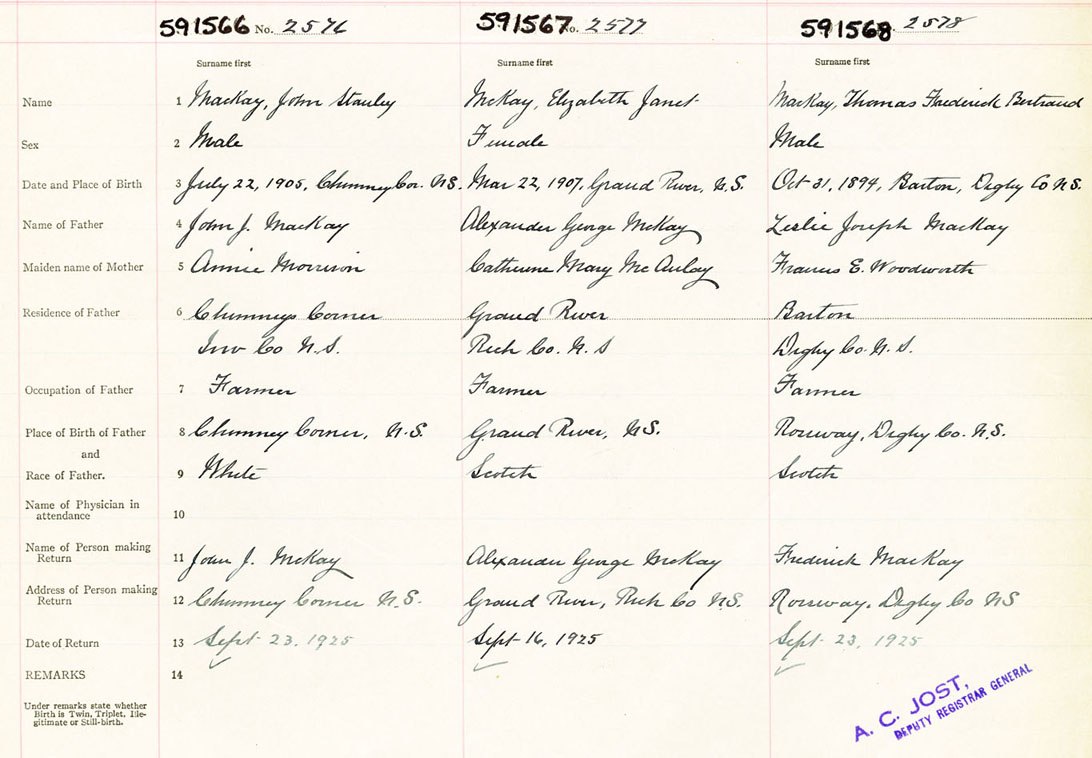 591566 No. 2576 591567 No. 2577 591568 2578
Surname first Surname first Surname first
Name 1 MacKay, John Stanley McKay, Elizabeth Janet MacKay, Thomas Frederick Bertrand
Sex 2 Male Female Male
Date and Place of Birth 3 July 22, 1905, Chimney Cor. N.S. Mar 22, 1907, Grand River, N.S. Oct 31, 1894, Barton, Digby Co N.S.
Name of Father 4 John J. MacKay Alexander George McKay Leslie Joseph MacKay
Maiden name of Mother 5 Annie Morrison Catherine Mary McAulay Frances E. Woodworth
Residence of Father 6 Chimneys Corner Grand River Barton
Inv Co N.S. Rich Co. N.S Digby Co. N.S.
Occupation of Father 7 Farmer Farmer Farmer
Place of Birth of Father 8 Chimney Corner, N.S. Grand River, N.S. Rossway, Digby Co. N.S.
and
Race of Father. 9 White Scotch Scotch
Name of Physician in
attendance 10
Name of Person making
Return 11 John J. McKay Alexander George McKay Frederick MacKay
Address of Person making
Return 12 Chimney Corner N.S. Grand River, Rich Co N.S. Rossway, Digby Co NS
Date of Return 13 Sept 23, 1925 Sept 16, 1925 Sept 23, 1925
REMARKS 14
Under remarks state whether
Birth is Twin, Triplet, Ille-
gitimate or Still-birth.
A. C. JOST,
DEPUTY REGISTRAR GENERAL